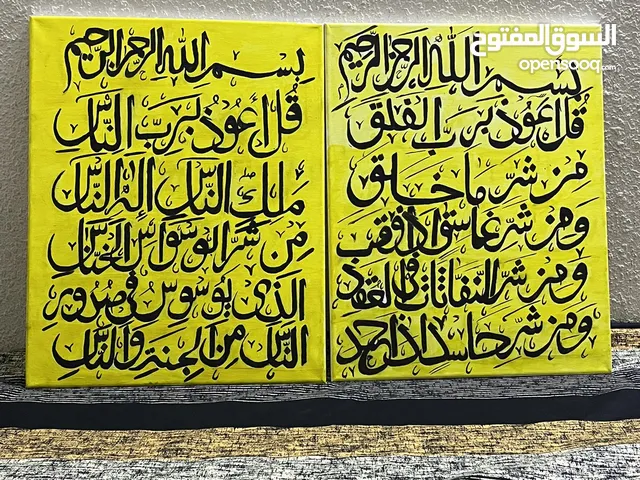 السوق المفتوح
opensooq.com
بسم الله الرحمن الرحيم
قل أعوذ برب الفلق
من شر ما خلق
ومن شر غاسق إذا وقب
ومن شر النفاثات في العقد
ومن شر حاسد إذا حسد
بسم الله الرحمن الرحيم
قل أعوذ برب الناس
ملك الناس إله الناس
من شر الوسواس الخناس
الذي يوسوس في صدور
الناس من الجنة والناس